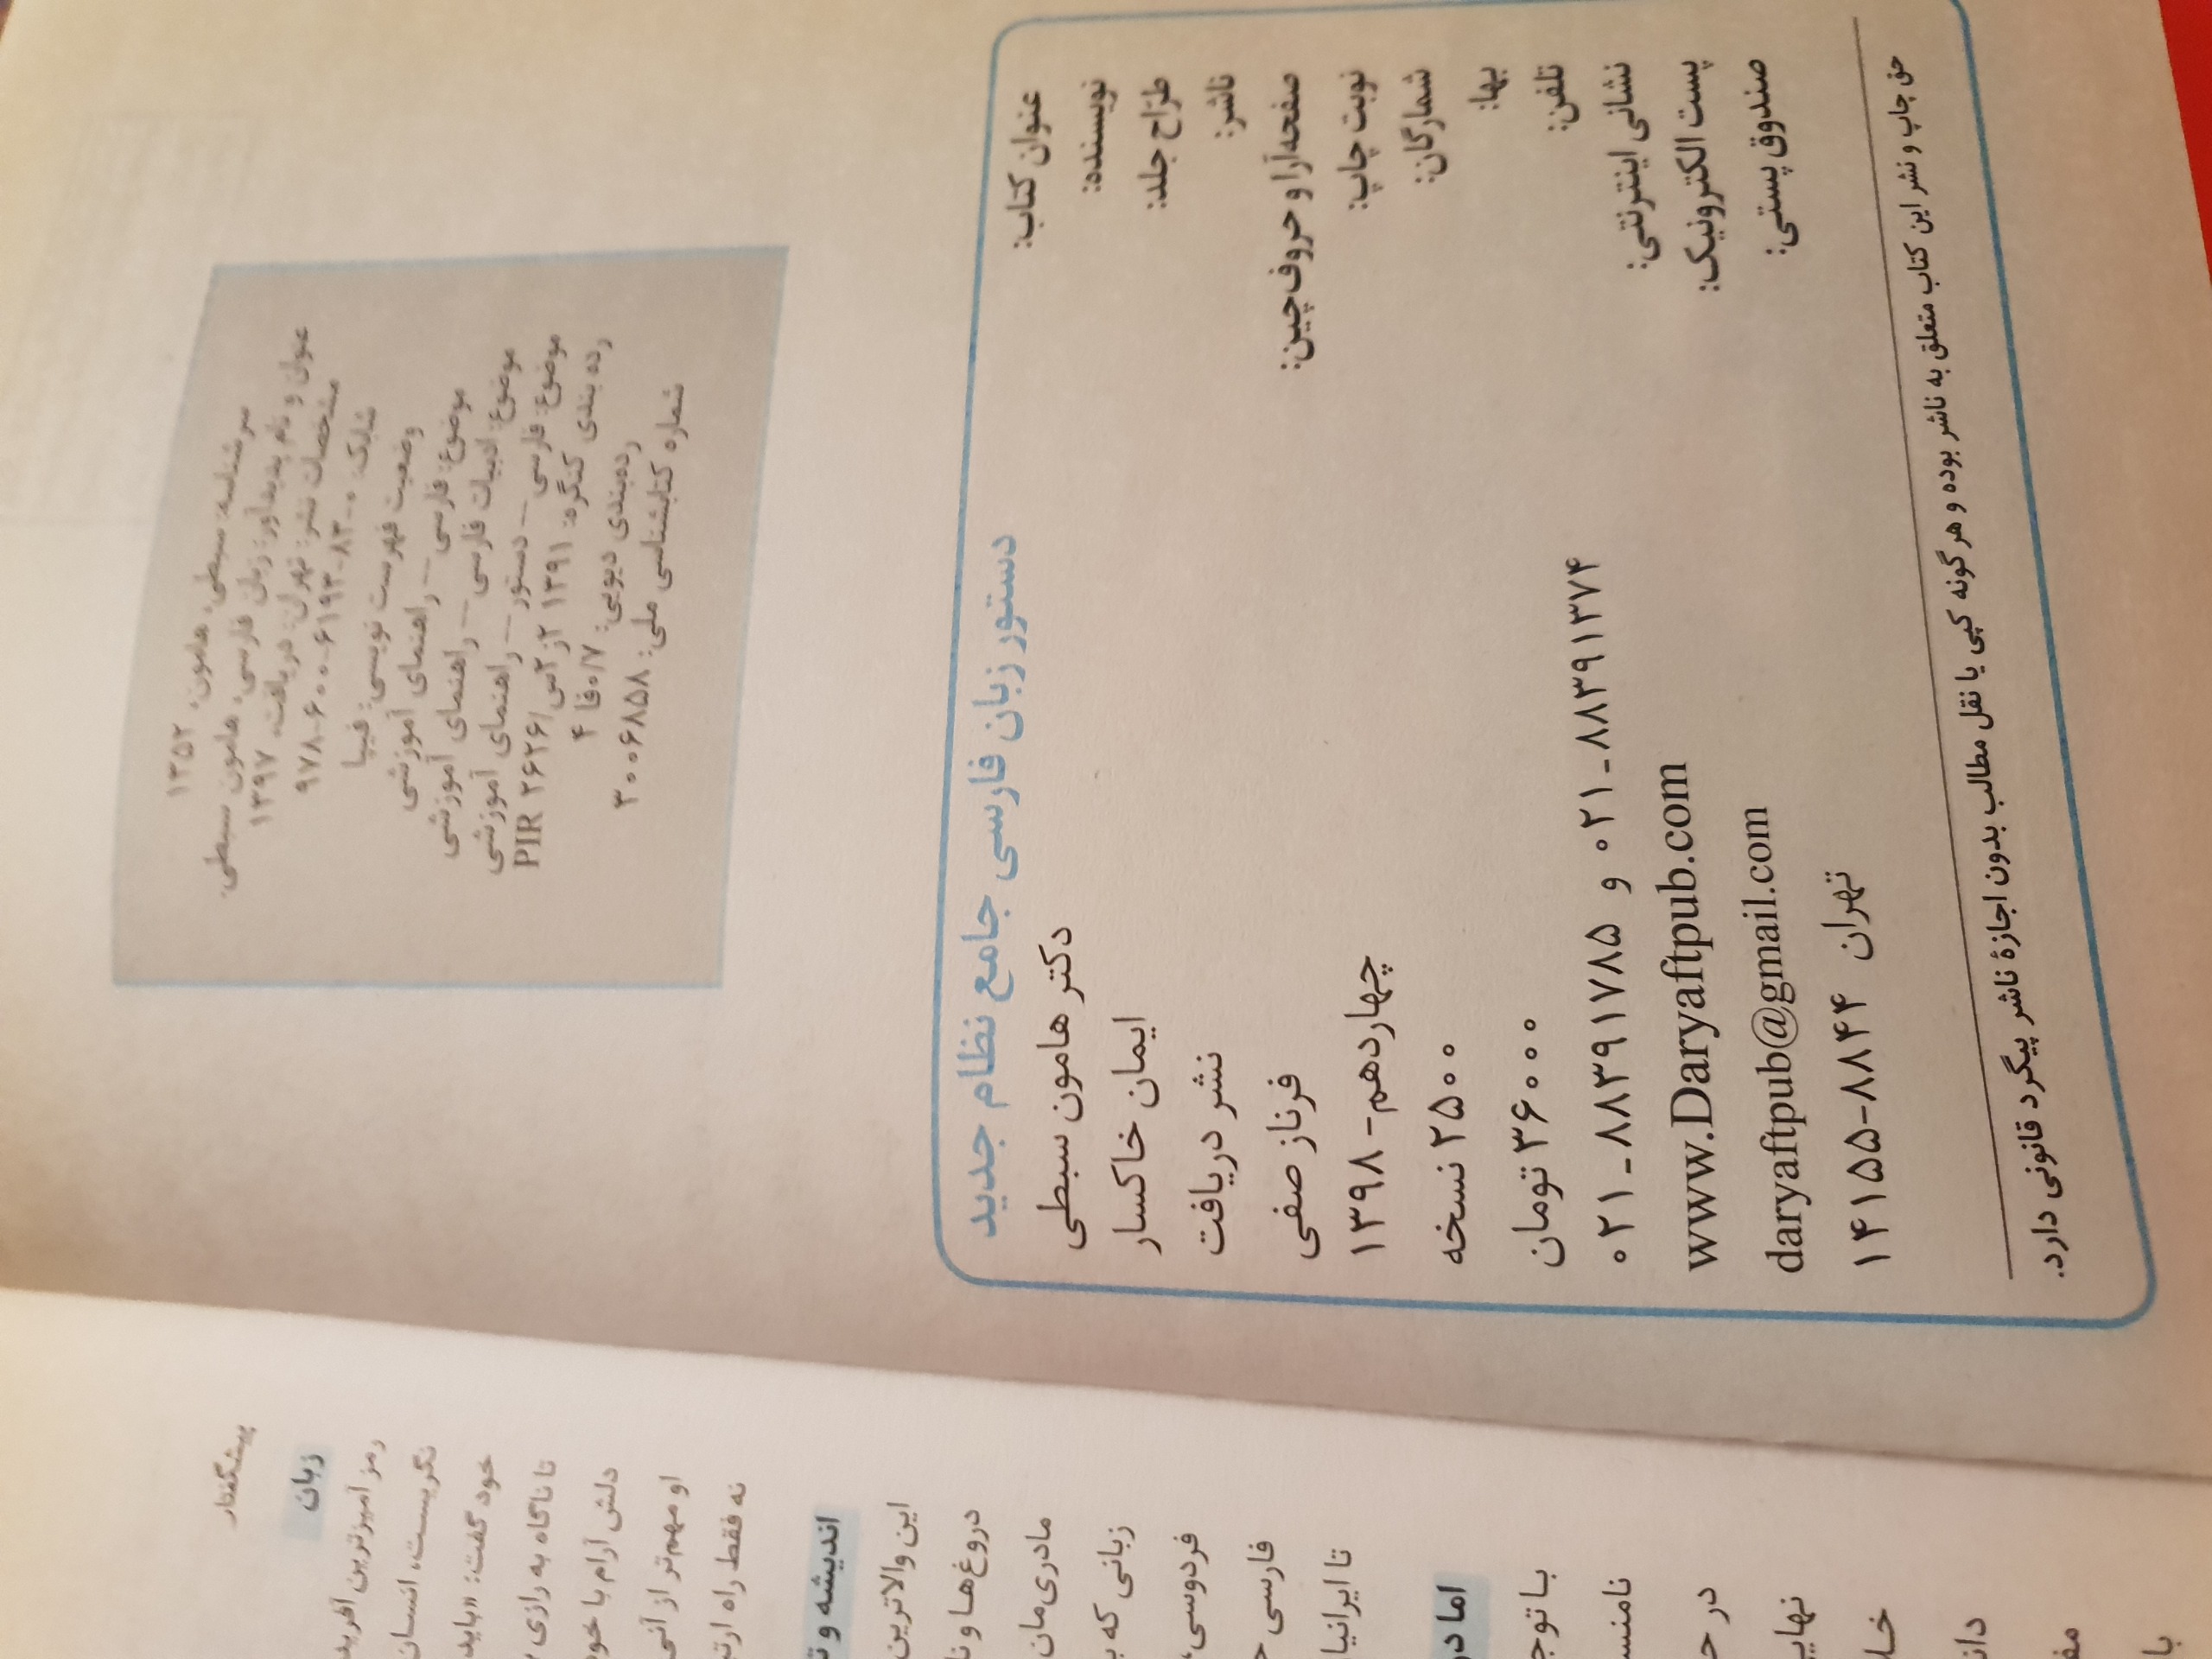 سرشناسه: سبطی، هامون، ۱۳۵۲
عنوان و نام پدیدآور: زبان فارسی، هامون سبطی.
مشخصات نشر: تهران: دریافت، ۱۳۹۷
شابک: ۰-۸۳-۶۱۹۳-۶۰۰-۹۷۸
وضعیت فهرست نویسی: فیپا
موضوع: فارسی -- راهنمای آموزشی
موضوع: ادبیات فارسی -- راهنمای آموزشی
موضوع: فارسی -- دستور -- راهنمای آموزشی
رده بندی کنگره: ۱۳۹۱ ۲ز۲س/PIR ۲۶۲۶
رده‌بندی دیویی: ۴فا۰/۷
شماره کتابشناسی ملی: ۳۰۰۶۸۵۸
عنوان کتاب: دستور زبان فارسی جامع نظام جدید
نویسنده: دکتر هامون سبطی
طرّاح جلد: ایمان خاکسار
ناشر: نشر دریافت
صفحه‌آرا و حروف‌چین: فرناز صفی
نوبت چاپ: چهاردهم- ۱۳۹۸
شمارگان: ۲۵۰۰ نسخه
بها: ۳۶۰۰۰ تومان
تلفن: ۸۸۳۹۱۳۷۴-۰۲۱ و ۸۸۳۹۱۷۸۵-۰۲۱
نشانی اینترنتی: www.Daryaftpub.com
پست الکترونیک: daryaftpub@gmail.com
صندوق پستی: تهران ۸۸۴۴-۱۴۱۵۵
حق چاپ و نشر این کتاب متعلق به ناشر بوده و هر گونه کپی یا نقل مطالب بدون اجازهٔ ناشر پیگرد قانونی دارد.
پیشگفتار
زبان
رمز آمیزترین آفرید
نگریست، انسان
خود گفت: «باید
تا ناگاه به رازی
دلش آرام با خود
او مهم‌تر از آنی
نه فقط راه ارتب
اندیشه و
این والاترین
دروغ‌ها و نا
مادری‌مان
زبانی که ب
فردوسی،
فارسی
تا ایرانیا
اما در
با توج
نامنس
در ح
نهایی
دان
با